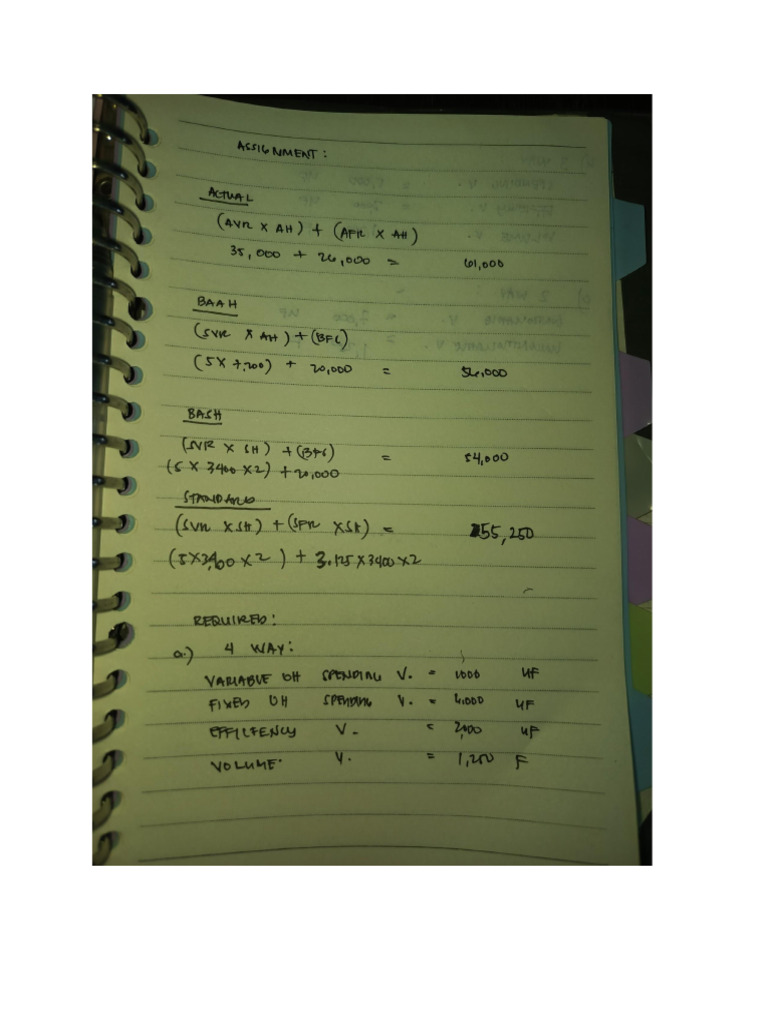 ASSIGNMENT:
ACTUAL
(AVR X AH) + (AFR X AH)
35,000 + 26,000 = 61,000
BAAH
(SVR X AH) + (BFC)
(5 X 7,200) + 20,000 = 56,000
BASH
(SVR X SH) + (BFC) = 54,000
(5 X 3400 X 2) + 20,000
STANDARD
(SVR X SH) + (SFR X SH) = 55,250
(5X3,400 X 2) + 3.125 X 3400 X 2
REQUIRED:
a.) 4 WAY:
VARIABLE OH SPENDING V. = 1000 UF
FIXED OH SPENDING V. = UF
EFFICIENCY V. = UF
VOLUME V. = 1,250 F